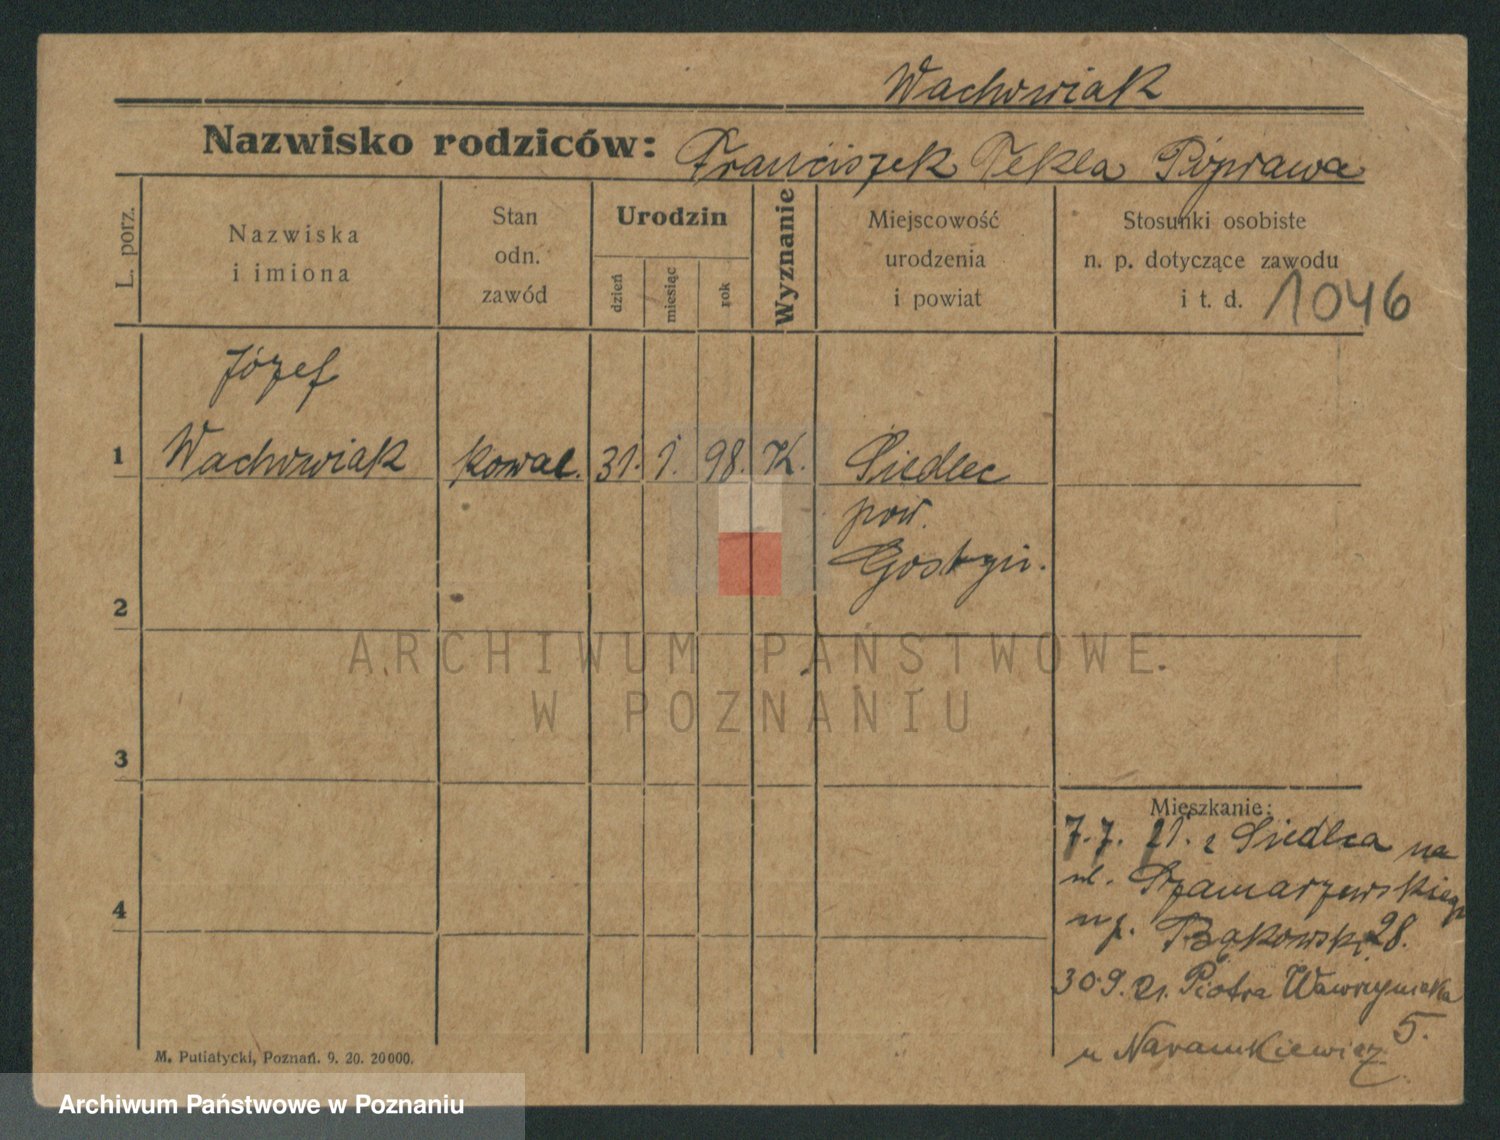 Wachowiak
Nazwisko rodziców: Franciszek Tekla Poprawa
L. porz.
Nazwiska
i imiona
Stan
odn.
zawód
Urodzin
dzień
miesiąc
rok
Wyznanie
Miejscowość
urodzenia
i powiat
Stosunki osobiste
n. p. dotyczące zawodu
i t. d. 1046
Józef
1 Wachowiak kowal. 31. 1. 98. K. Siedlec
pow.
Gostyń.
2
ARCHIWUM PAŃSTWOWE
W POZNANIU
3
Mieszkanie:
7.7. 21. z Siedlca na
ul. Szamarzewskiego
Bąkowski 28.
4
30.9.21. Piotra Wawrzyniaka
5.
u Naramkiewicz
M. Putiatycki, Poznań. 9. 20. 20000.
Archiwum Państwowe w Poznaniu